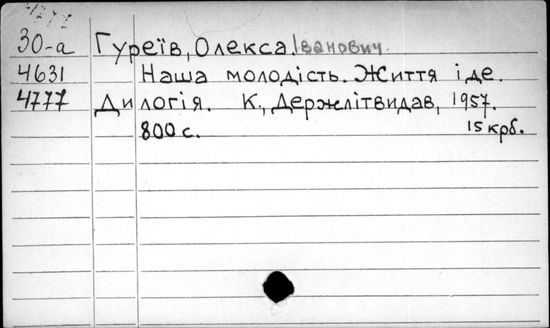 30-а Гуреїв, Олекса Іванович.
4631 Наша молодість. Життя іде.
4777 Дилогія. К., Держлітвидав, 1957.
800 с. 15 крб.